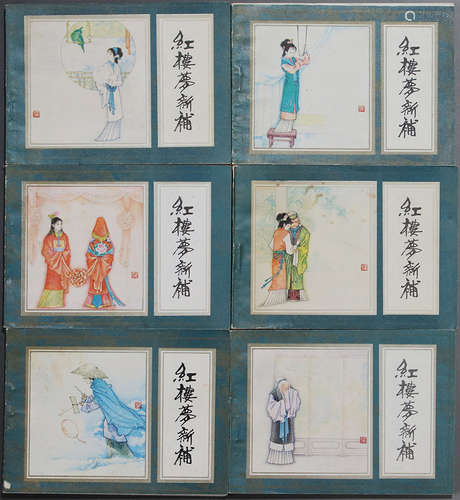 紅樓夢新補
紅樓夢新補
紅樓夢新補
紅樓夢新補
紅樓夢新補
紅樓夢新補